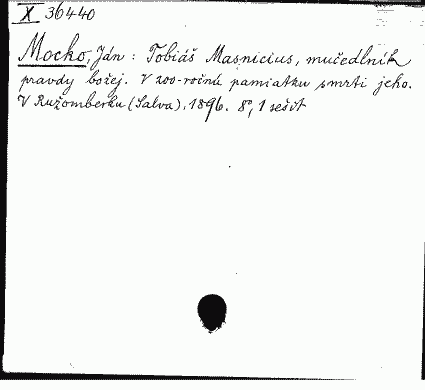 X 36440
Mocko, Ján: Tobiáš Masnicius, mučedlník
pravdy božej. V 200-ročnú pamiatku smrti jeho.
V Ružomberku (Salva), 1896. 8°, 1 sešit